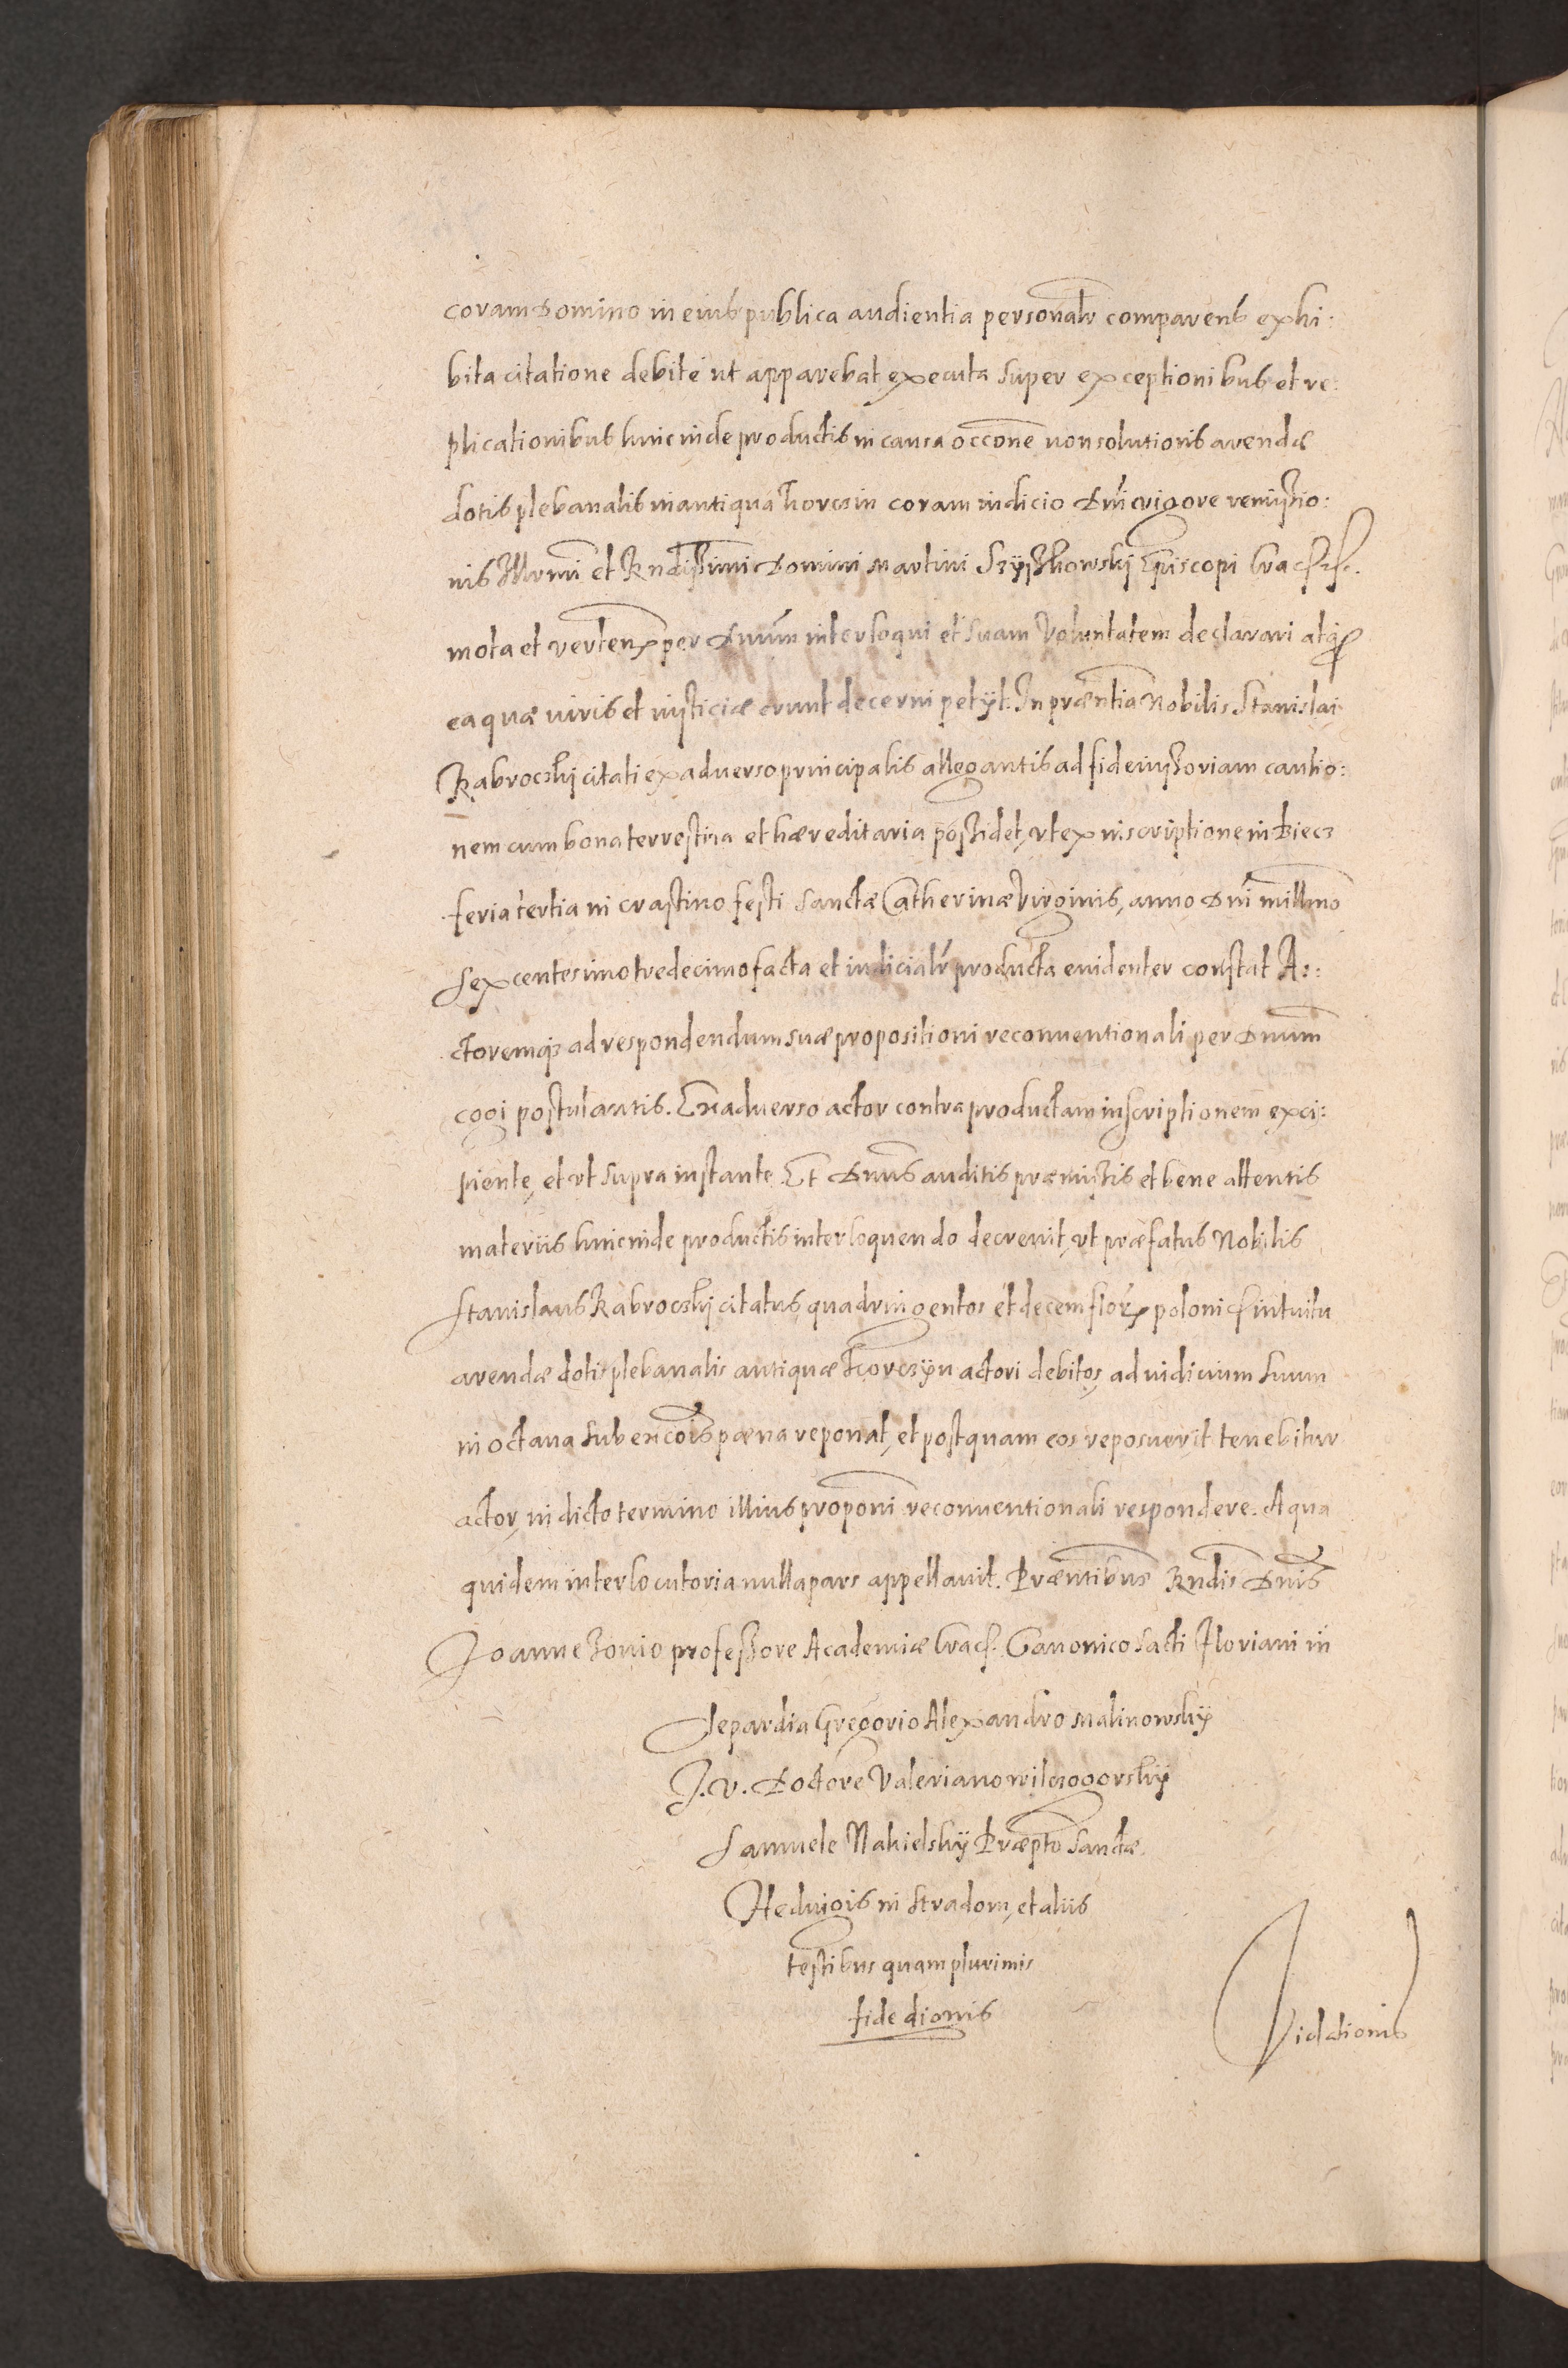 coram Domino in eius publica audientia personalr comparens exhi:
bita citatione debite ut apparebat executa super exceptionibus et re:
plicationibus hinc inde productis in causa occone non solutionis arendæ
dotis plebanalis in antiqua Thorczin coram iudicio Dni vigore remissio:
nis Illrmi et Rndissimi Domini Martini Szÿszkowskj Episcopi Crac
mota et verten per Dnum interloqui et suam voluntatem declarari atq
ea quæ iuris et iusticiæ erunt decerni petÿt. In præntia Nobilis Stanislai
Rabroczkj citati ex adverso principalis allegantis ad fideiussoriam cautio:
nem cum bona terrestria et hæreditaria possidet, ut ex inscriptione in Biecz
feria tertia in crastino festi Sanctæ Catherinæ Virginis, anno Dni millmo
sexcentesimo tredecimo facta et iudicialr producta euidenter constat A:
ctoremq ad respondendum suæ propositioni reconuentionali per Dnum
cogi postulantis. Ex aduerso actor contra productam inscriptionem exci:
piente, et ut supra instante Et Dnus auditis præmissis et bene attentis
materiis hinc inde productis interloquendo decreuit, ut præfatus Nobilis
Stanislaus Rabroczkj citatus quadringentos et decem flor polonic intuitu
arendæ dotis plebanalis antiquæ Thorczÿn actori debitos, ad iudicium suum
in octaua sub excois pæna reponat, et postquam eos reposuerit tenebitur
actor, in dicto termino illius proponi reconuentionali respondere. A qua
quidem interlocutoria nulla pars appellauit. Præntibus Rndis Dnis
Joanne Ionio professore Academiæ Crac. Canonico Sacti Floriani in
Clepardia Gregorio Alexandro Malinowskÿ
J. V. Doctore Valeriano Wilczogorskÿ
Samuele Nakielskÿ Præpto Sanctæ
Heduigis in Stradom, et aliis
testibus quam plurimis
fide dignis
Vidationis